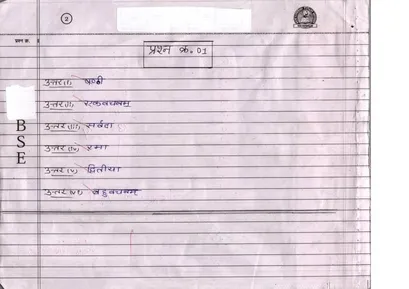 2
प्रश्न क्र.
प्रश्न क्र. 01
उत्तर (I) षष्ठी
उत्तर (II) एकवचनम्
उत्तर (III) सर्वदा
उत्तर (IV) रमा
उत्तर (V) द्वितीया
उत्तर (VI) बहुवचनम्
B
S
E